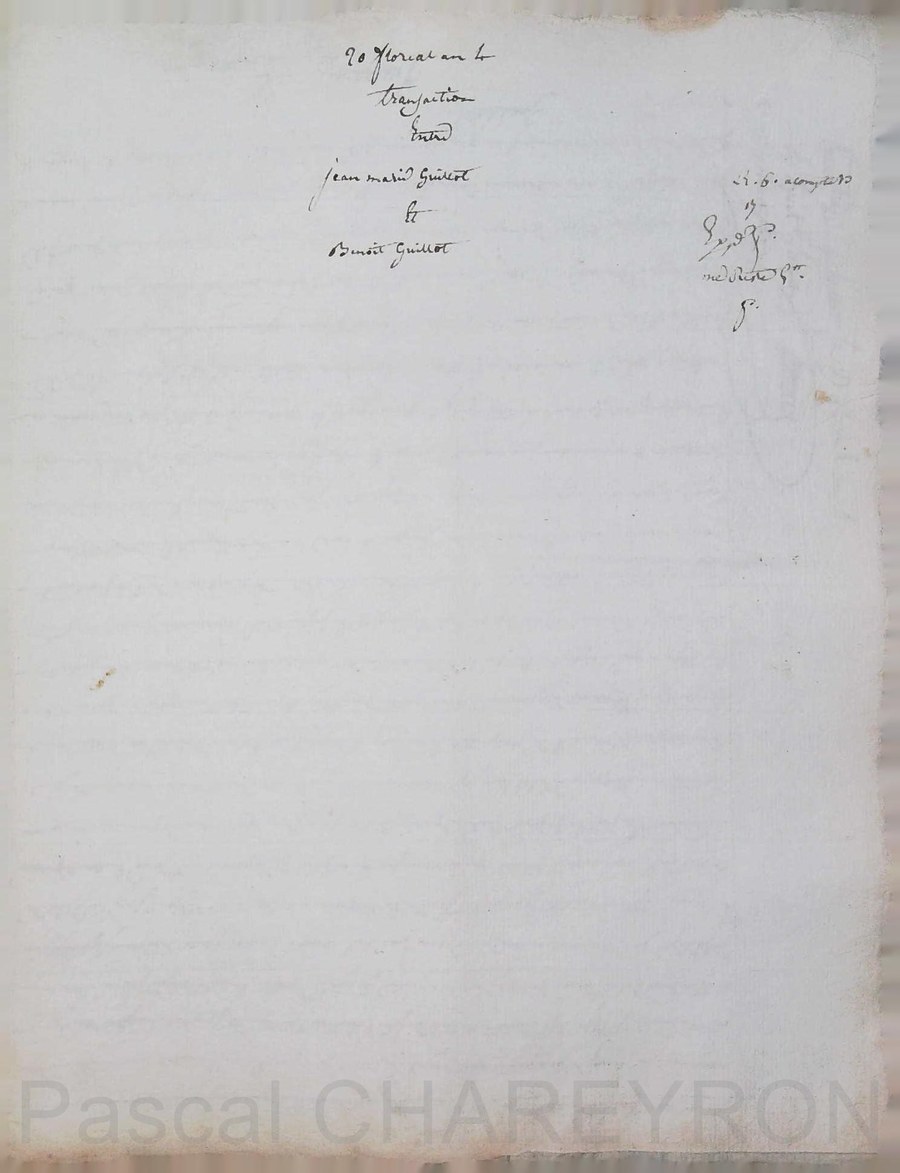 20 floreal an 4
transaction
Entre
jean marie Guillot
Et
Benoit Guillot
R. 6. acompte
17
Exped
me Reste
Pascal CHAREYRON